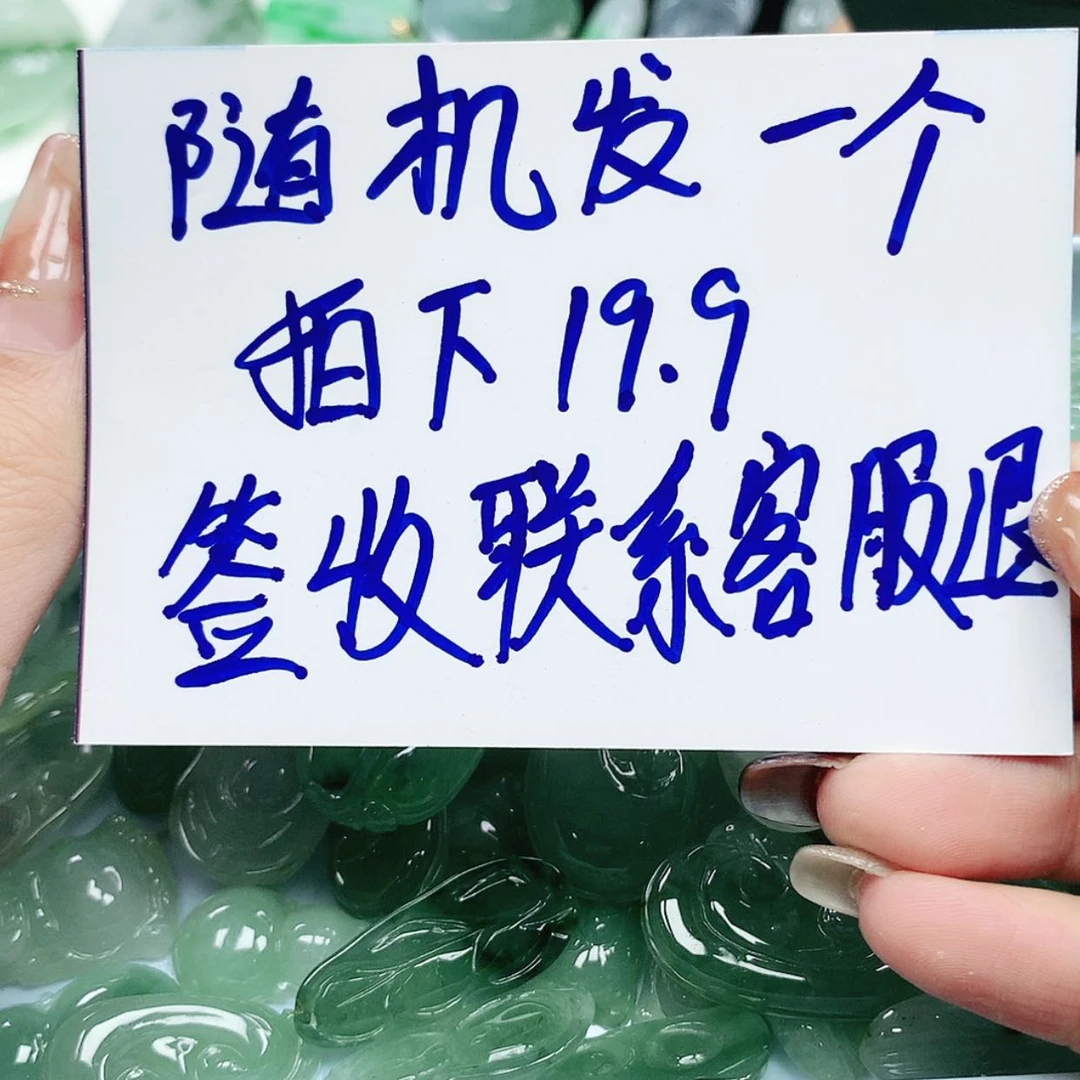 随机发一个
拍下19.9
签收联系客服退